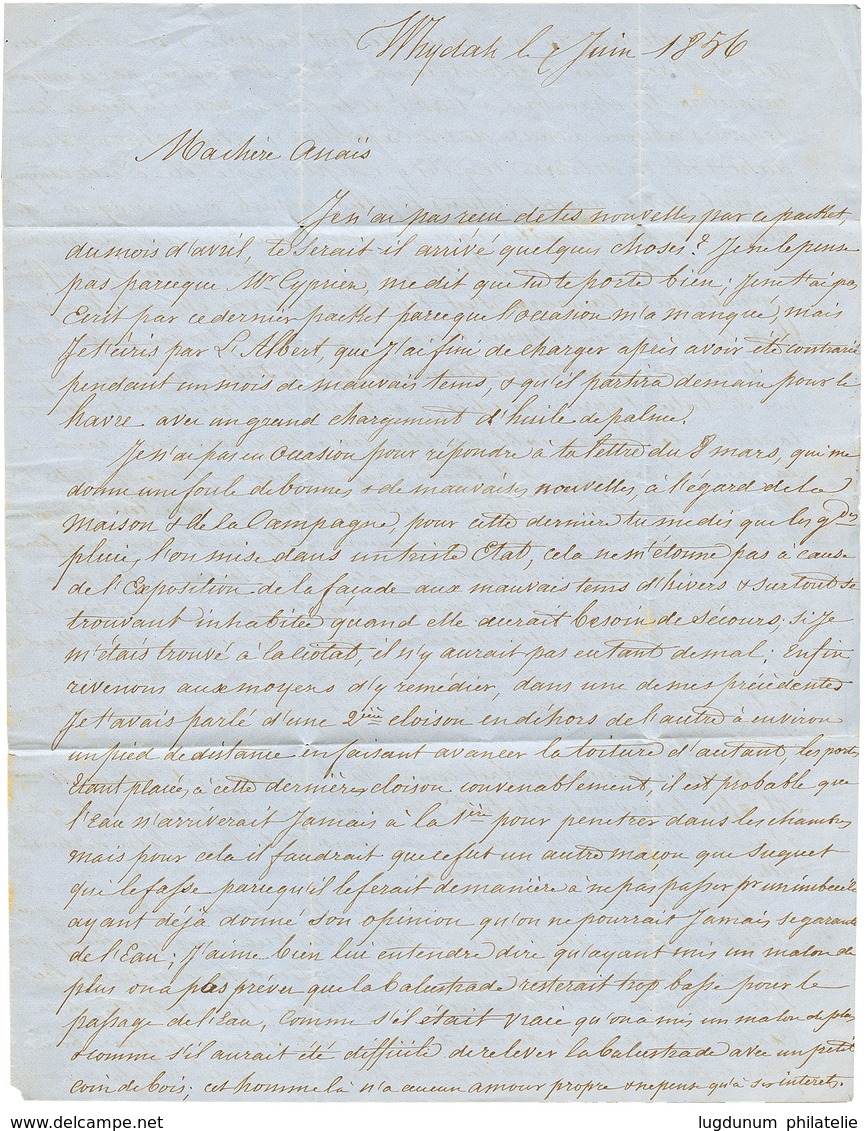 Whydah le Juin 1856
Machère Anaïs
Je n'ai pas recu de tes nouvelles par ce packet
du mois d'avril, te serait il arrivé quelques choses? Je ne le pense
pas parceque Mr Cyprien, me dit que tu te porte bien; Je ne t'ai pas
Ecrit par ce dernier packet parceque l'occasion m'a manqué, mais
Je t'écris par L'Albert, que J'ai fini de charger après avoir été contrarié
pendant un mois de mauvais tems, & qu'il partira demain pour le
havre avec un grand chargement d'huile de palme.
Je n'ai pas eu occasion pour répondre à ta lettre du 8 mars, qui me
donne une foule de bonnes & de mauvaises nouvelles, à l'égard de la
Maison & de la Campagne, pour cette dernière tu me dis que les gdes
pluies, l'on mise dans un triste Etat, cela ne m'étonne pas à cause
de l'Exposition de la façade aux mauvais tems d'hivers & surtout se
trouvant inhabitée quand elle aurait besoin de sécours; si Je
m'étais trouvé à la Ciotat, il n'y aurait pas eu tant de mal; Enfin
rivenons aux moyens d'y remédier, dans une de mes précédentes
Je t'avais parlé d'une 2ième cloison en déhors de l'autre à environ
un pied de distance en faisant avancer la toiture d'autant, les portes
Etant placées à cette dernière cloison convenablement, il est probable que
l'Eau n'arriverait Jamais à la 1ère pour penetrer dans les chambres
mais pour cela il faudrait que ce fut un autre maçon que Suquet
qui le fasse parcequ'il le ferait de manière à ne pas passer pr un imbecile
ayant déjà donné son opinion qu'on ne pourrait Jamais se garantir
de l'Eau; J'aime bien lui entendre dire qu'ayant mis un malon de
plus on a pas préveu que la balustrade resterait trop basse pour le
passage de l'Eau, comme s'il était vraie qu'on a mis un malon de plus
& comme s'il aurait été difficile de relever la balustrade avec un petit
coin de bois; cet homme là n'a aucun amour propre & ne pense qu'à ses interets.
lugdunum philatelie